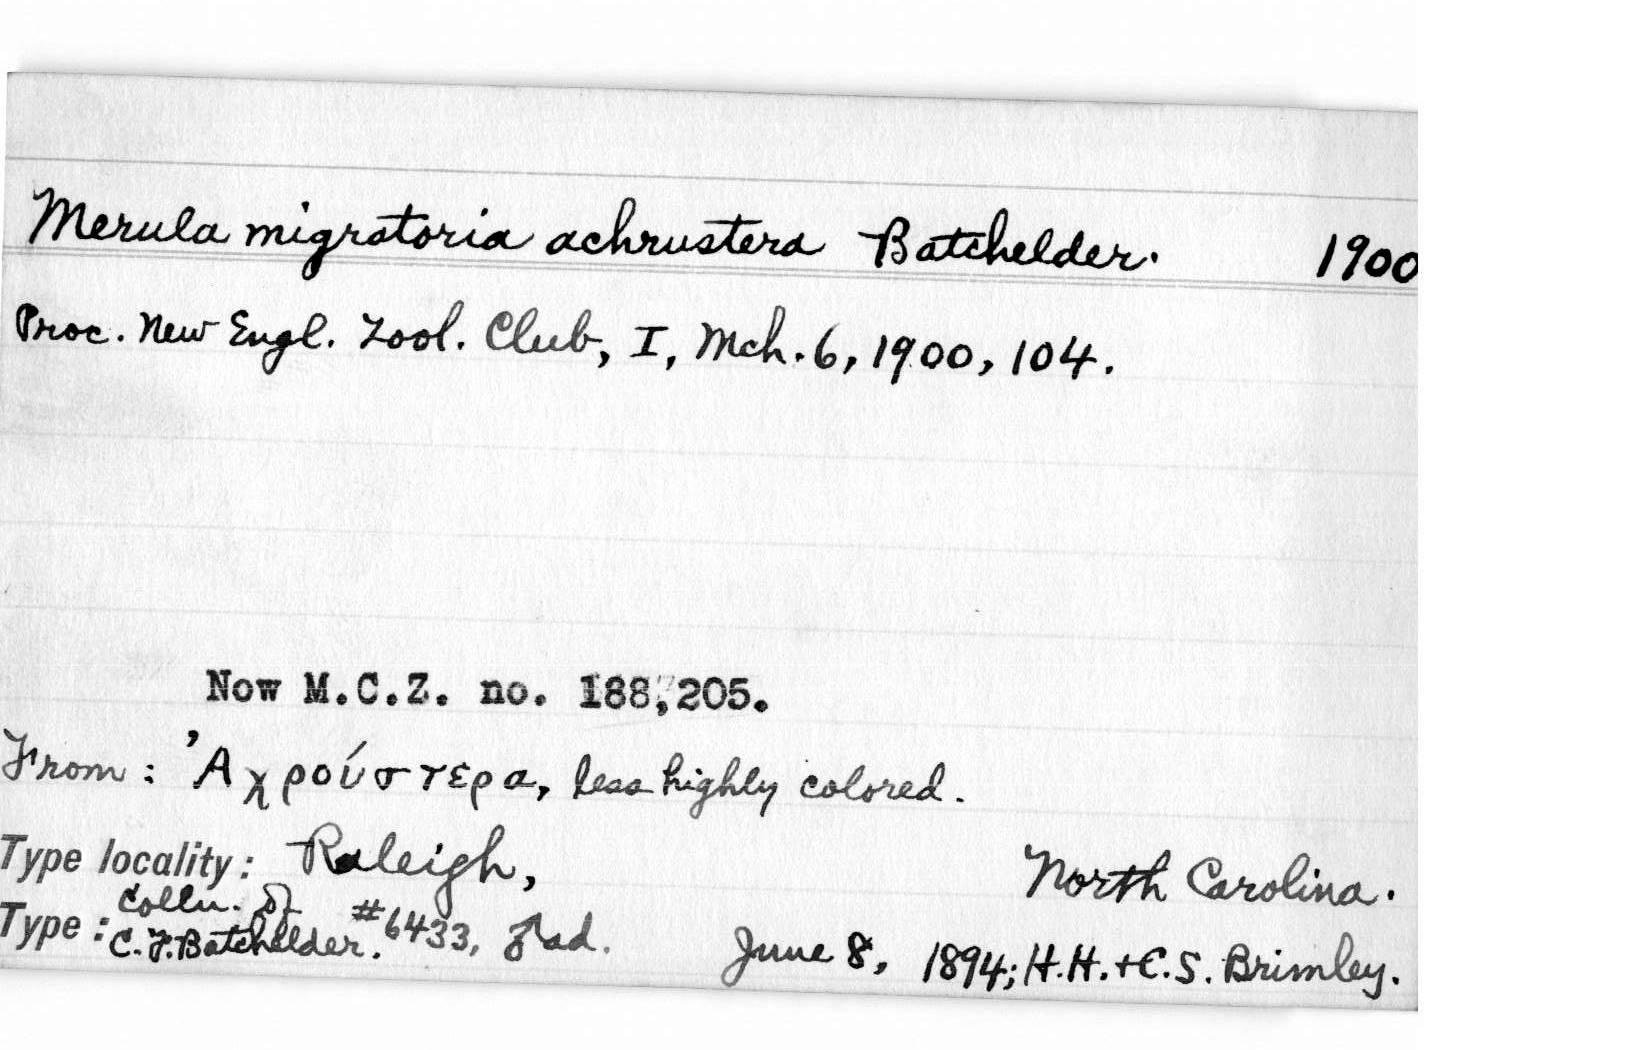 Merula migratoria achrustera Batchelder. 1900
Proc. New Engl. Zool. Club, I, Mch. 6, 1900, 104.
Now M.C.Z. no. 188,205.
From: Ἀχρούστερα, less highly colored.
Type locality: Raleigh, North Carolina.
Type: Colln. of C. F. Batchelder. #6433, ♂ ad. June 8, 1894; H.H. + C.S. Brimley.